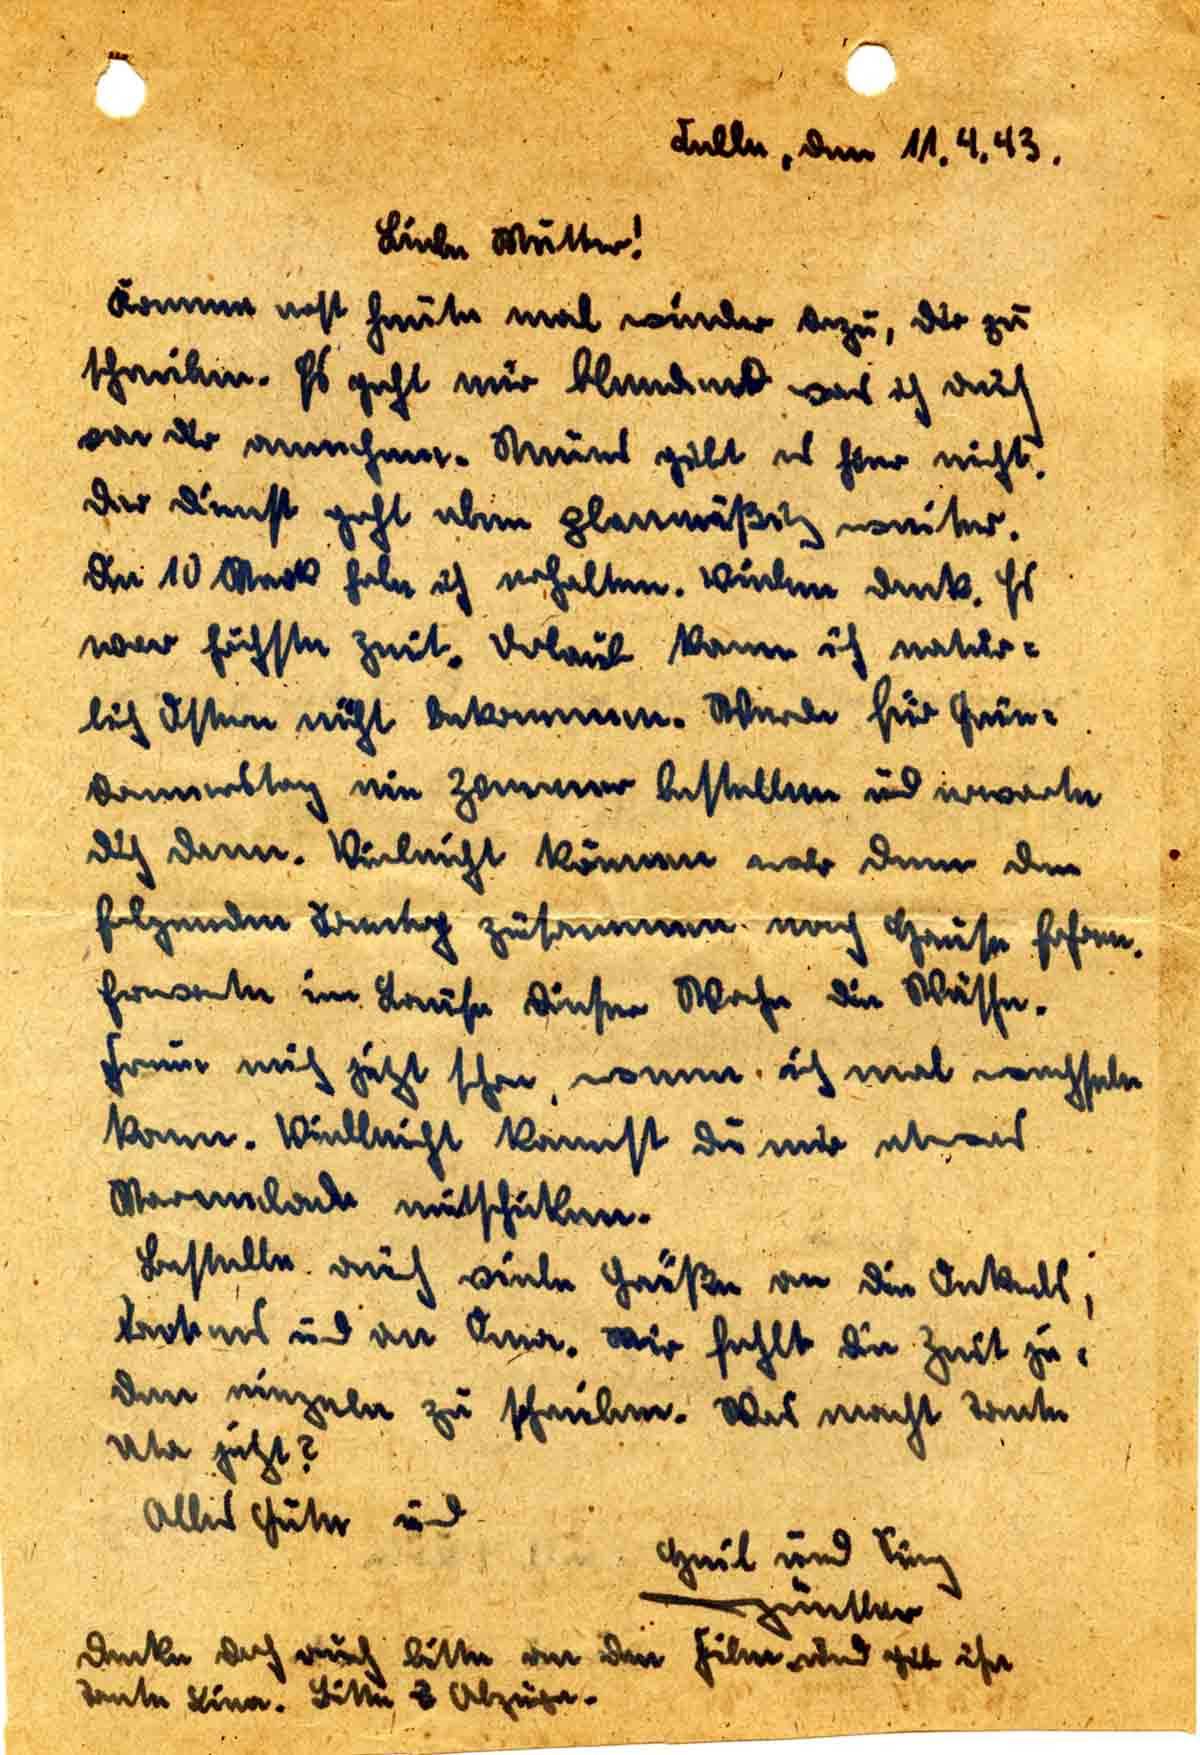 Celle, den 11.4.43.
Liebe Mutter!
Komme erst heute mal wieder dazu, dir zu
schreiben. Es geht mir blendend was ich auch
von dir annehme. Neues gibt es hier nicht.
Der Dienst geht eben planmäßig weiter.
Die 10 Mark habe ich erhalten. Vielen Dank. Es
war höchste Zeit. Urlaub kann ich natür-
lich Ostern nicht bekommen. Werde für Grün-
donnerstag ein Zimmer bestellen und erwarte
dich dann. Vieleicht können wir dann den
folgenden Sonntag zusammen nach Hause fahren.
Erwarte im Laufe dieser Woche die Wäsche.
Freue mich jetzt schon, wenn ich mal wechseln
kann. Vielleicht kannst du mir etwas
Marmelade mitschicken.
Bestelle auch viele Grüße an die
und an Oma. Mir fehlt die Zeit je-
den einzeln zu schreiben. Was macht Tante
Uta jetzt?
Alles Gute und
Heil und Sieg
Günther
Denke doch auch bitte an den Film und gib ihn
Tante Lina. Bitte Abzüge.